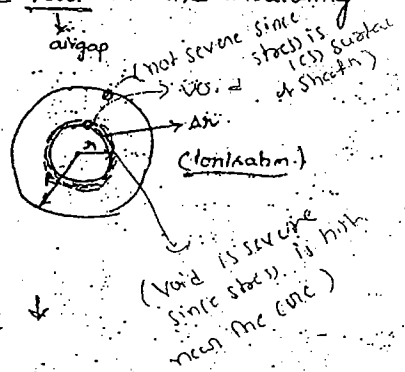 airgap
(not severe since
stress is
less surface
of sheath)
void
Δr
(Contraction)
r
(Void is severe
since stress is high
near the core)